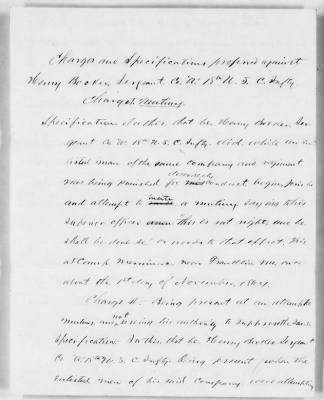 Charges and Specifications preferred against
Henry Booker Sergeant Co. "A" 18th U. S. C. Infty.
Charge I. Mutiny.
Specification In this that he Henry Booker Ser-
geant Co. A. 18th U. S. C. Infty. did, while an en-
listed man of the same company and regiment
was being punished for disorderly conduct begin, join in
and attempt to incite a mutiny saying to his
superior officer "this is not right, and he
shall be done so" or words to that effect. This
at Camp near Franklin on or
about the 1st day of November, 1864.
Charge II. Being present at an attempted
mutiny and not using his authority to suppress the same
Specification In this that he Henry Booker Sergeant
Co. A 18th U. S. C. Infty. being present, when the
enlisted men of his said Company were attempting